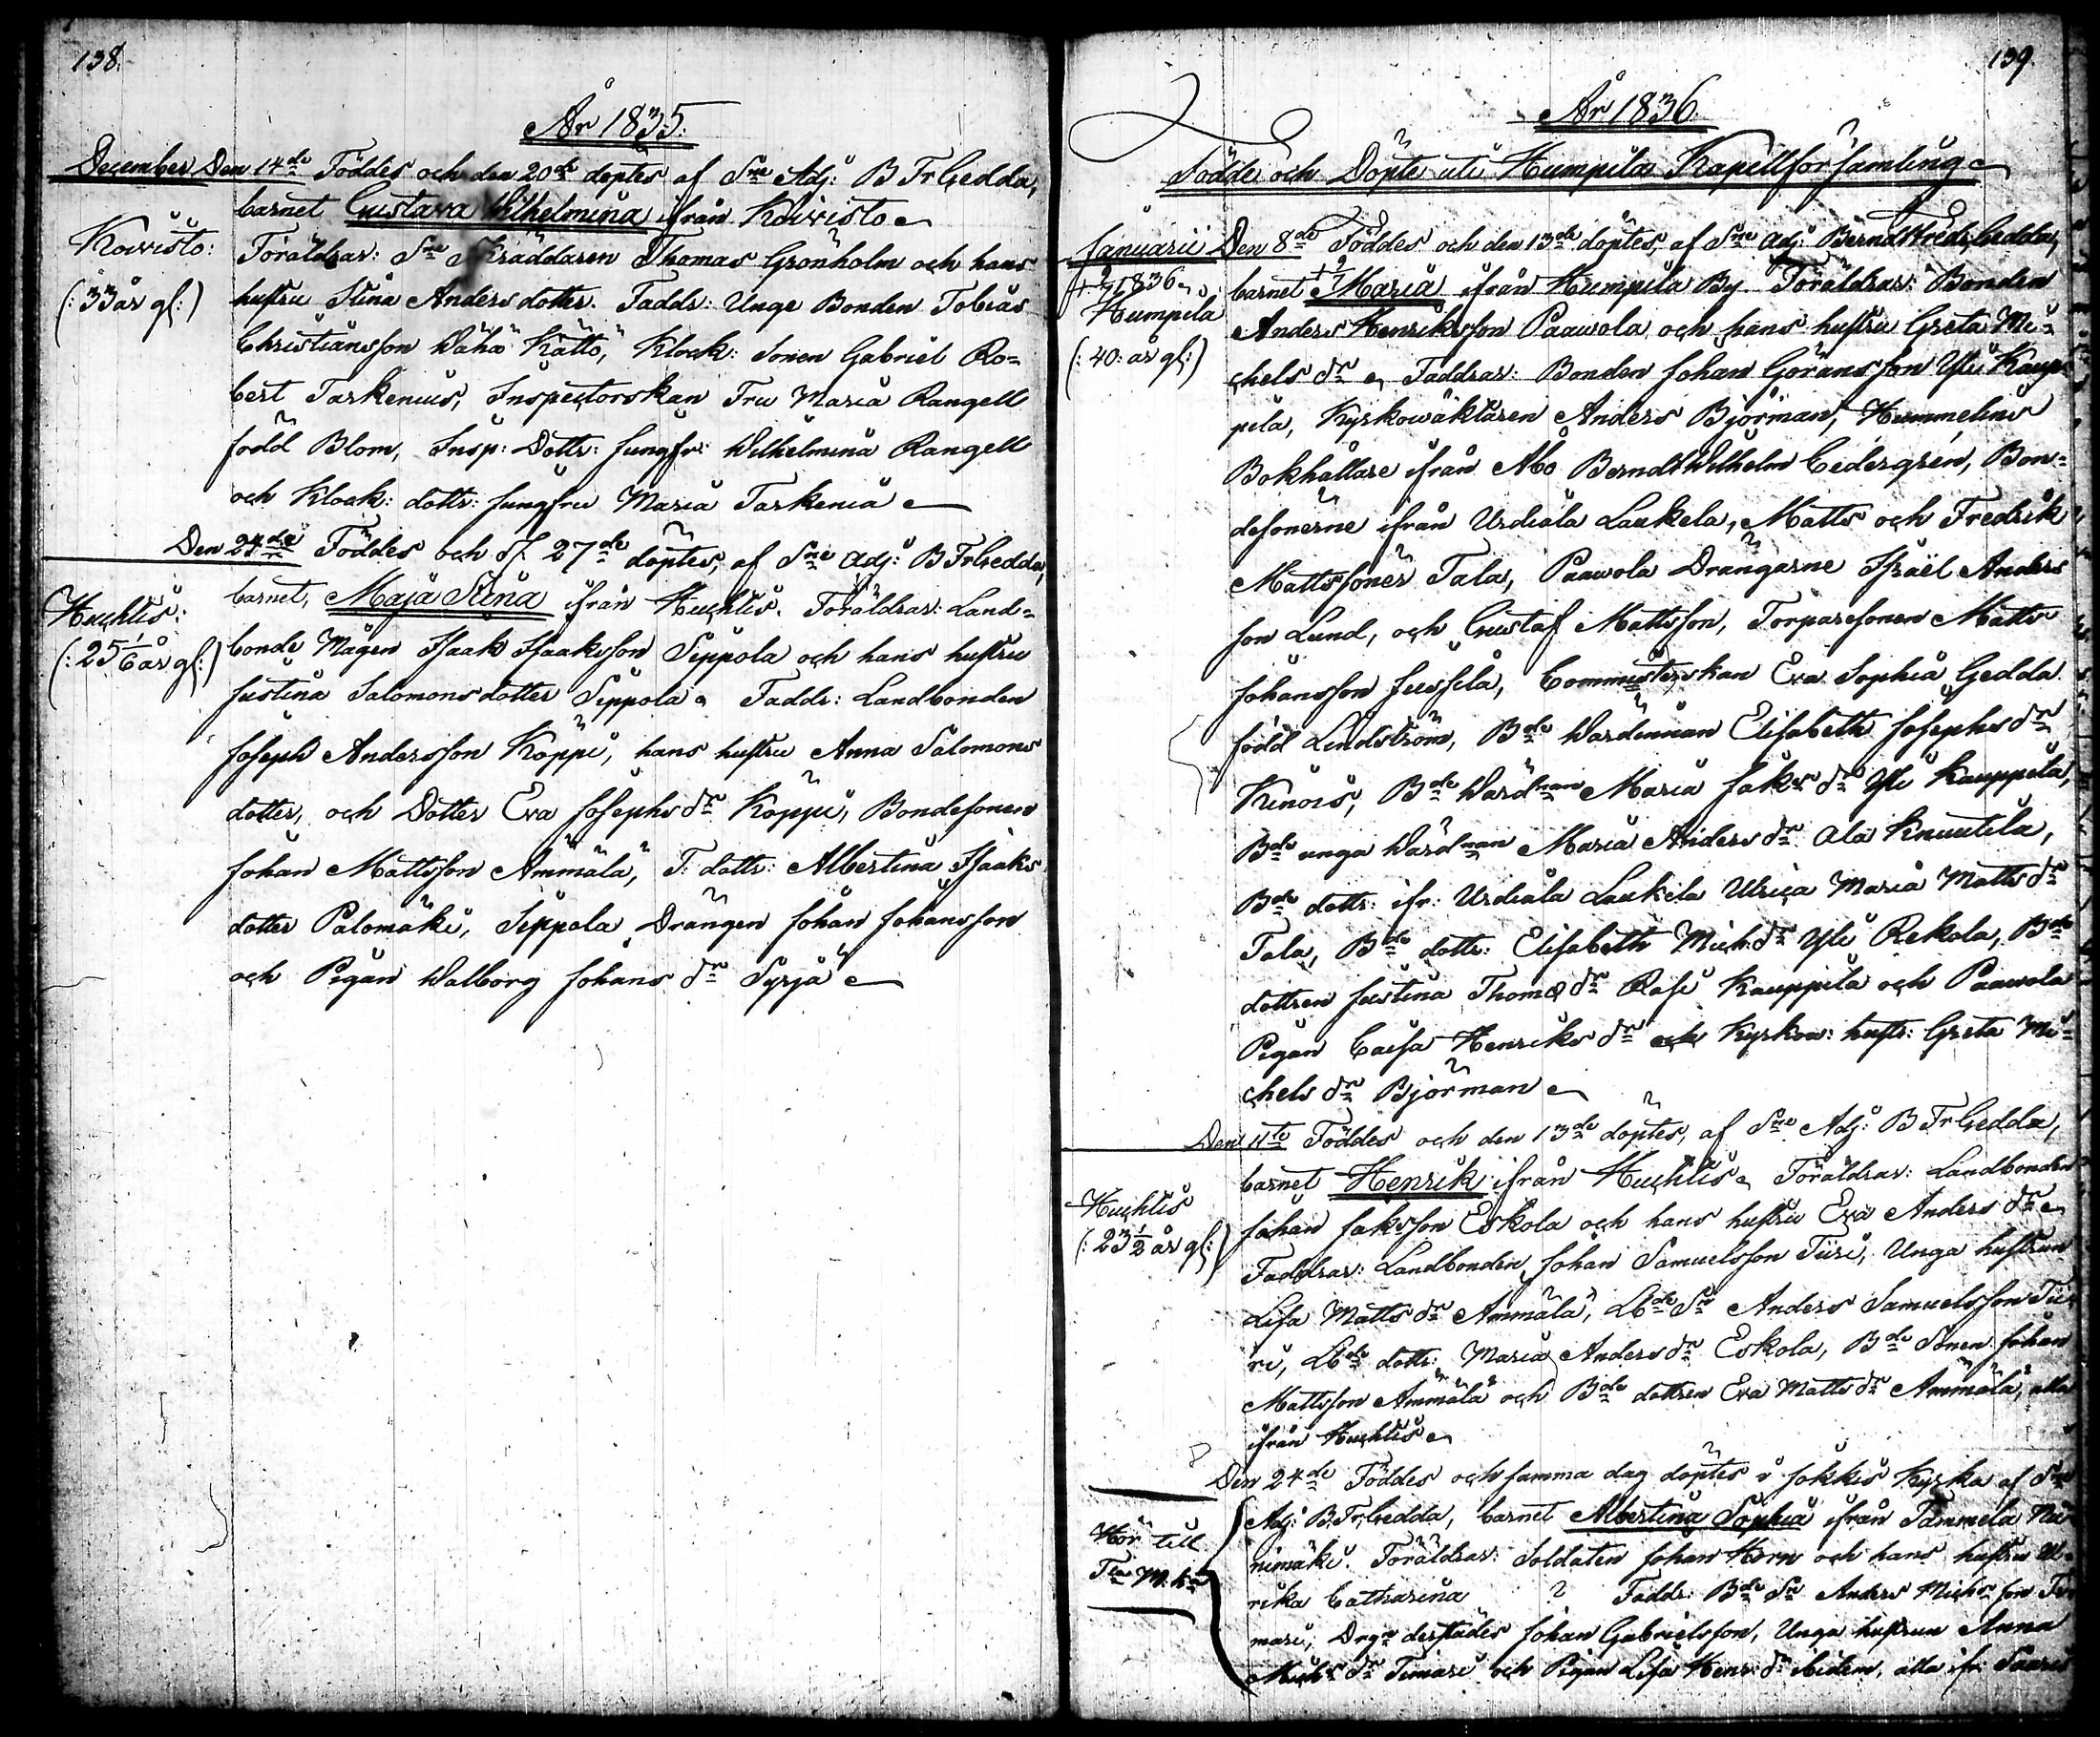 138.
År 1835.
December Den 14de Föddes och den 20de döptes af Sne Adj: B Fr Gedda,
barnet Gustava Wilhelmina ifrån Koivisto
Koivisto: Föräldrar: Sne Skräddaren Thomas Grönholm och hans
(: 33 år gl:) hustru Stina Andersdotter. Fadds: Unge Bonden Tobias
Christiansson Wähä Kättö, Klock: Sonen Gabriel Ro=
bert Tarkenius, Inspectorskan Fru Maria Rangell
född Blom, Insp: Dottr: Jungfr: Wilhelmina Rangell
och Klock: dottr: Jungfru Maria Tarkenia
Den 24de Föddes och d. 27de döptes, af Sne Adj: B Fr Gedda,
Huhtis: barnet, Maja Stina ifrån Huhtis. Föräldrar: Land=
(: 25 1/6 år gl:) bonde Mågen Isaak Isaaksson Seppola och hans hustru
Justina Salomonsdotter Seppola. Faddr: Landbonden
Joseph Andersson Köppi, hans hustru Anna Salomons
dotter, och Dotter Eva Josephs dr Köppi, Bondesonen
Johan Mattsson Ämmälä, T: dottr: Albertina Isaaks
dotter Palomäki, Seppola Drängen Johan Johansson
och Pigan Walborg Johans dr Syrjä
139.
År 1836.
Födde och Döpte uti Humpila Kapellförsamling
Januarii Den 8de Föddes och den 13de döptes, af Sne Adj: Bernd Fredr Gedda,
1836 barnet Maria ifrån Humpila By. Föräldrar: Bonden
Humpila Anders Henriksson Paavola och hans hustru Greta Mi=
(: 40: år gl:) chels dr. Faddrar: Bonden Johan Göransson Yli Kaup=
pila, Kyrkowäktaren Anders Björman, Hummelins
Bokhållare ifrån Åbo Berndt Wilhelm Cedergrén, Bon=
desönerne ifrån Urdiala Laukela, Matts och Fredrik
Mattssöner Tala, Paavola Drängarne Israël Anders
son Lund, och Gustaf Mattsson, Torparesonen Matts
Johansson Jussila, Comministerskan Eva Sophia Gedda
född Lindström, Bde Wärdinnan Elisabeth Josephs dr
Kinois, Bde Wärdnan Maria Jaks dr Yli Kauppila,
Bde unga Wärdnan Maria Anders dr Ala Knuutila,
Bde dottr: ifr: Urdiala Laukela Ulrica Maria Matts dr
Tala, Bde dottr: Elisabeth Mich: dr Yli Rekola, Bde
dottren Justina Thomæ dr Rasi Kauppila och Paavola
Pigan Caisa Henriks dr och Kyrkow: hustr: Greta Mi=
chels dr Björman
Den 11te Föddes och den 13de döptes, af Sne Adj: B Fr Gedda,
barnet Henrik ifrån Huhtis. Föräldrar: Landbonden
Huhtis Johan Jaksson Eskola och hans hustru Eva Anders dr
(: 23 1/2 år gl:) Faddrar: Landbonden Johan Samuelsson Tiiri, Unga hustrun
Lisa Matts dr Ämmälä, Lbde Sn Anders Samuelsson Tii=
ri, Lbde dottr: Maria Anders dr Eskola, Bde Sonen Johan
Mattsson Ämmälä och Bde dottren Eva Matts dr Ämmälä, alla
ifrån Huhtis
Den 24de Föddes och samma dag döptes i Jokkis Kyrka af Sne
Adj: B. Fr. Gedda, barnet Albertina Sophia ifrån Tammela Nii=
Hör till nimäki. Föräldrar: Soldaten Johan Horn och hans hustru Ul=
rika Catharina ? Faddr: Bde Sn Anders Michs son Ti=
mari, Drgn derstädes Johan Gabrielsson, Unga hustrun Anna
Michs dr Timari och Pigan Lisa Henr: dr ibidem, alla ifr. Saaris